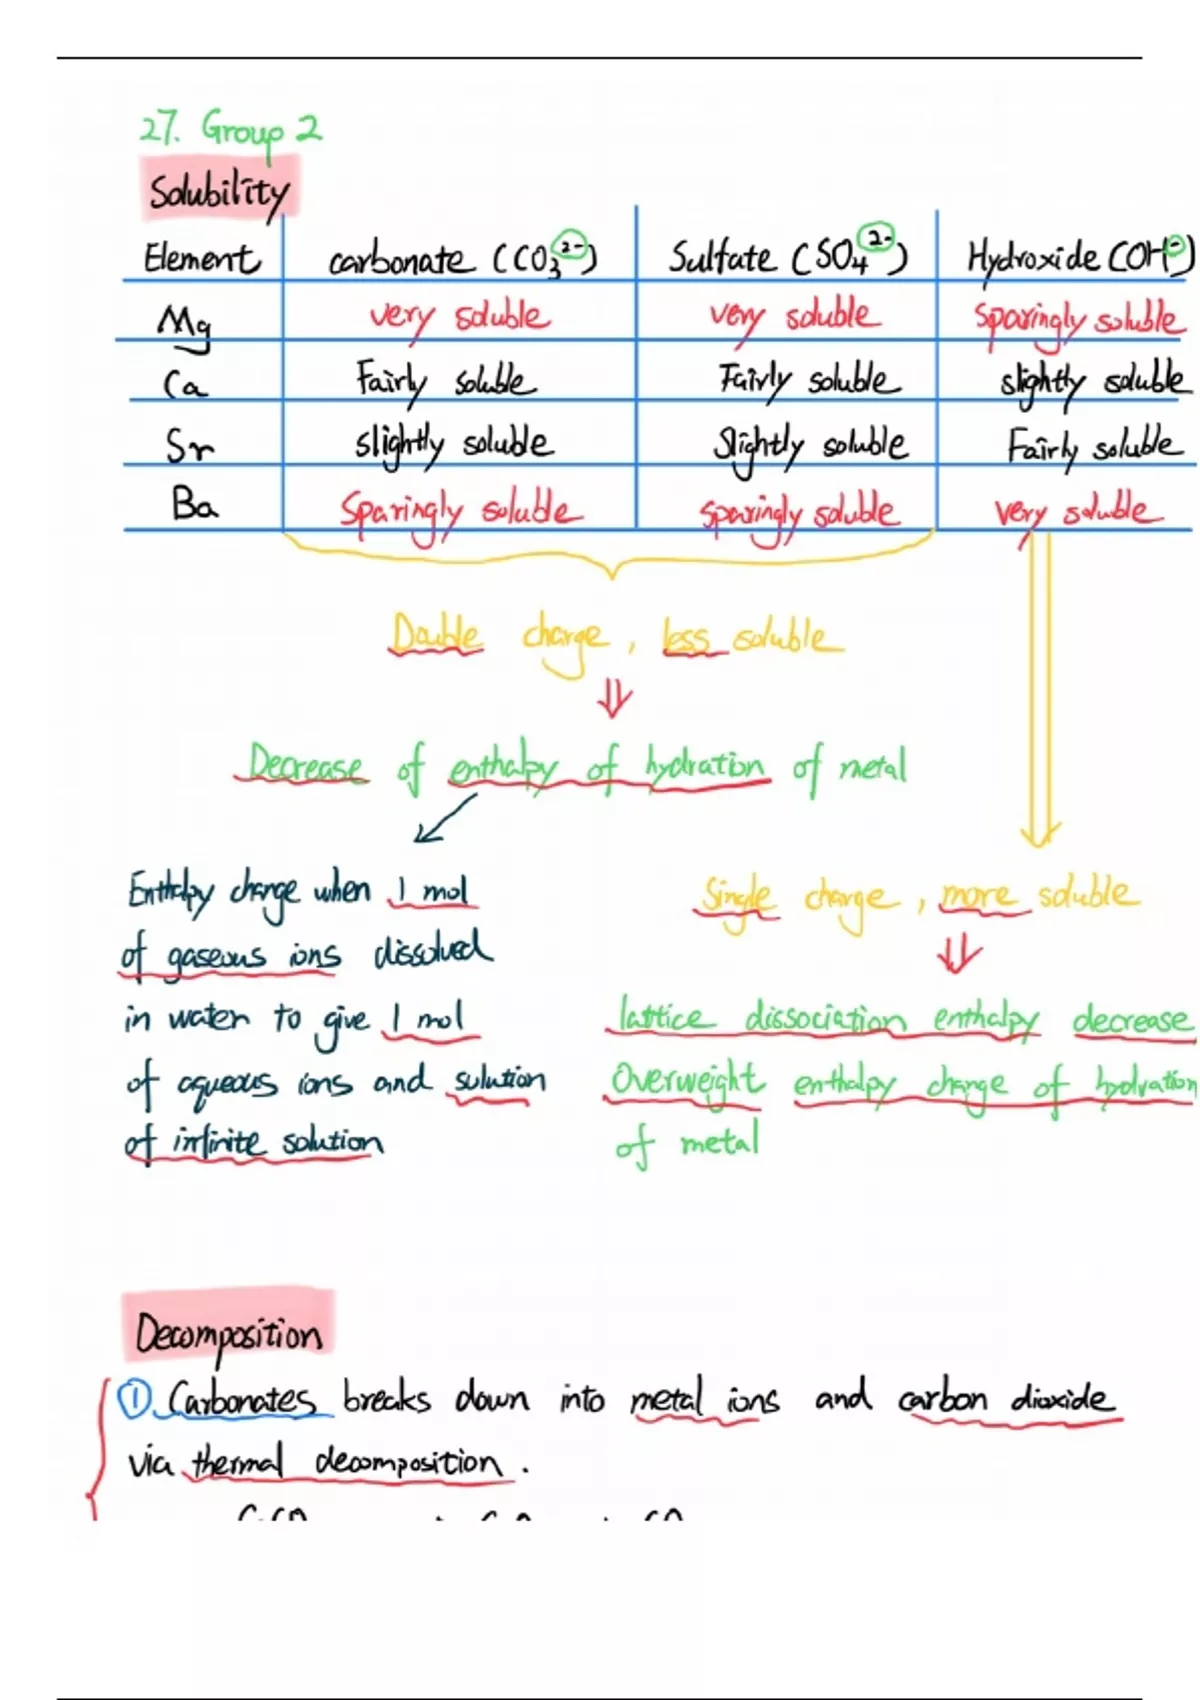 27. Group 2
Solubility
Element carbonate (CO3 2-) Sulfate (SO4 2-) Hydroxide (OH-)
Mg very soluble very soluble sparingly soluble
Ca Fairly soluble Fairly soluble slightly soluble
Sr slightly soluble slightly soluble Fairly soluble
Ba Sparingly soluble sparingly soluble very soluble
Double charge, less soluble
Decrease of enthalpy of hydration of metal
Enthalpy change when 1 mol
of gaseous ions dissolved
in water to give 1 mol
of aqueous ions and solution
of infinite solution
Single charge, more soluble
lattice dissociation enthalpy decrease
Overweight enthalpy change of hydration
of metal
Decomposition
① Carbonates breaks down into metal ions and carbon dioxide
via thermal decomposition.